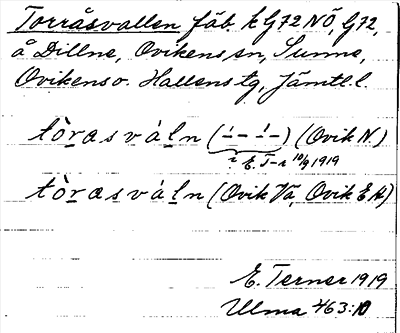 Torråsvallen fäb. k G72 NÖ, G72,
å Dillne, Ovikens sn, Sunne,
Ovikens o. Hallens tg, Jämtl. l.
tòrasváln (–́ – –́ –) (Ovik N.)
? E. T–r 10/9 1919
tòrasváln (Ovik Vå, Ovik E A)
E. Terner 1919
Ulma 463:10